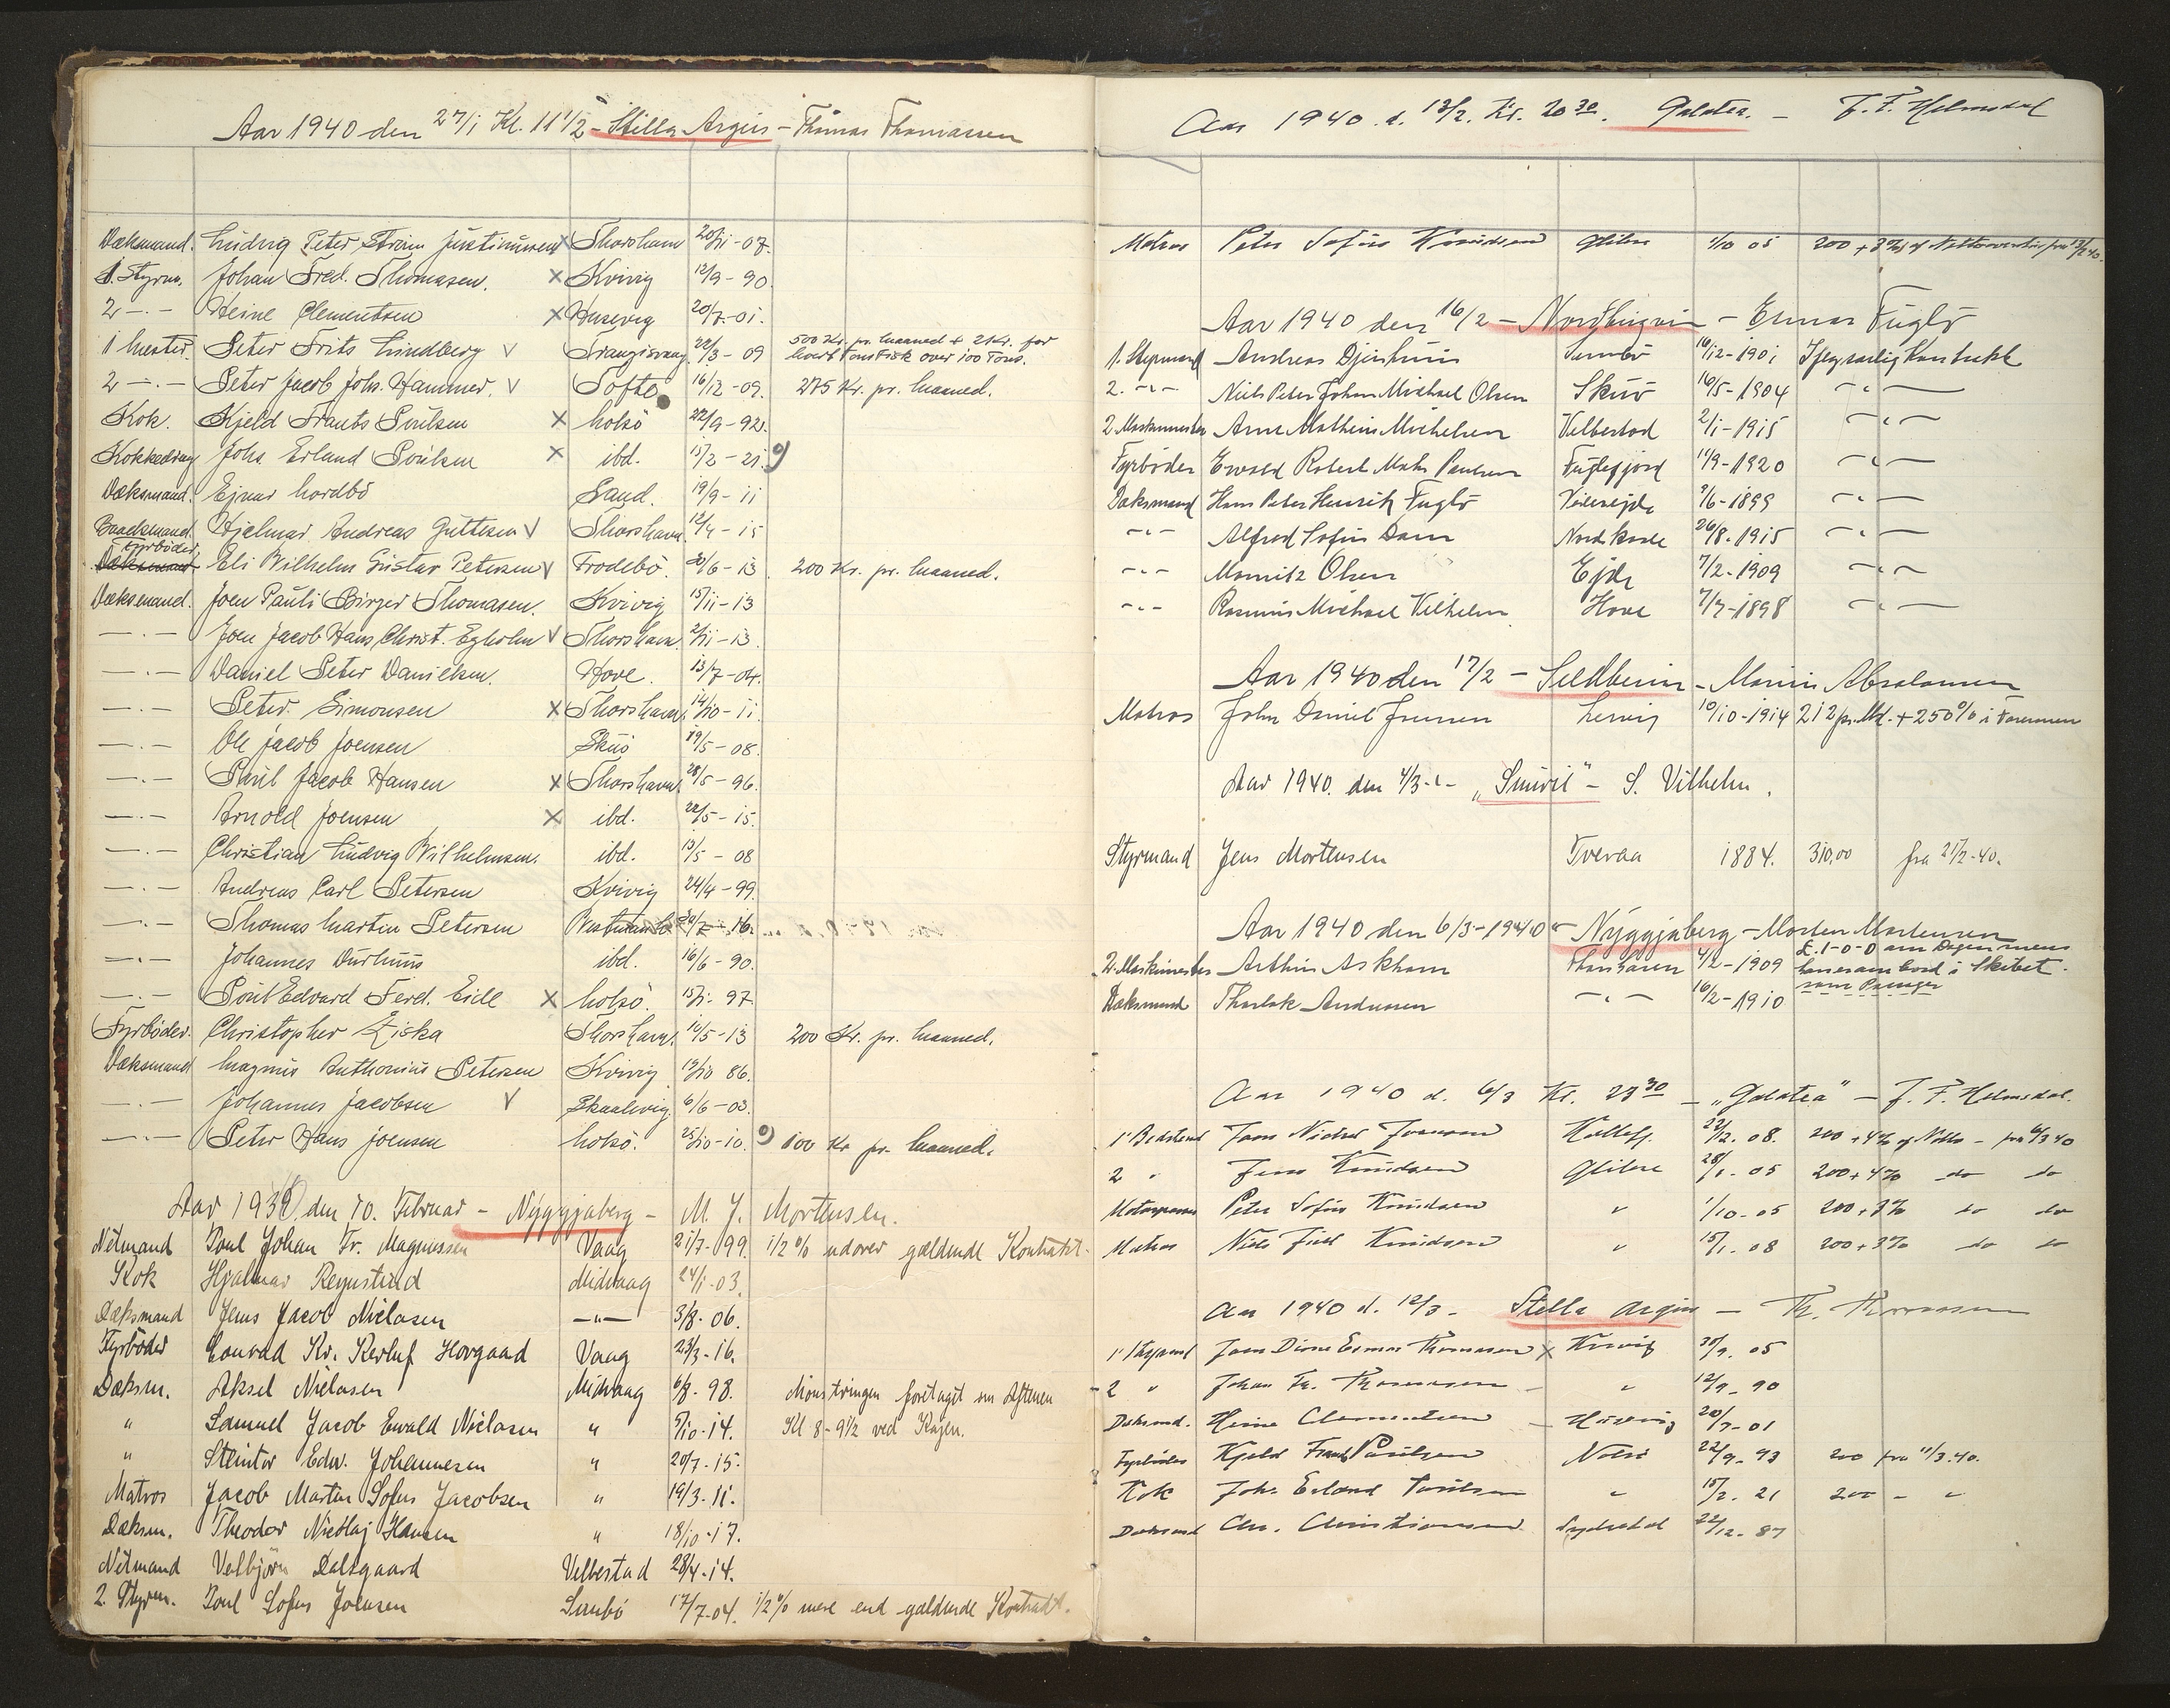 Aar 1940 den 27/1 Kl. 11 1/2 - Stella Argus - Thomas Thomassen
Dæksmand. Ludvig Peter Strøm Justinussen x Thorshavn 20/11-07.
1. Styrm. Johan Fred. Thomasen. x Kvivig 12/9-90.
2 -.- Heine Clementsen x Husevig 20/7-01.
1 Mester. Peter Frits Lindberg v Trangisvaag 22/3-09 500 Kr. pr. Maaned + 2 Kr. for hvert Tons Fisk over 100 Tons.
2 -.- Peter Jacob Johs. Hammer. v Tofte 16/12-09. 275 Kr. pr. Maaned.
Kok. Kjeld Frants Poulsen x Nolsö 22/9-92.
Kokkedreng Johs. Erland Poulsen x ibd. 15/2-21. 9)
Dæksmand. Ejnar Nordbö Sand. 19/9-11
Hjelmar Andreas Guttesen v Thorshavn 12/4-15
Fyrböder
Dæksmand Eli Wilhelm Gustav Petersen v Frodebö. 30/6-13 200 Kr. pr. Maaned.
Dæksmand. Joen Pauli Birger Thomasen. Kvivig 15/11-13
-.- Joen Jacob Hans Christ. Egholm v Thorshavn. 2/11-13.
-.- Daniel Peter Danielsen. Hove. 13/7-04.
-.- Peter Simonsen x Thorshavn. 14/10-11.
-.- Ole Jacob Joensen Skuö 19/5-08.
-.- Poul Jacob Hansen x Thorshavn. 28/5-96.
-.- Arnold Joensen x ibd. 22/5-15.
-.- Christian Ludvig Wilhelmsen. ibd. 13/5-08
-.- Andreas Carl Petersen Kvivig 24/4-99.
-.- Thomas Martin Petersen
-.- Johannes Durhuus ibd. 16/6-90.
-.- Poul Edvard Ferd. Eide x Nolsö. 15/1-97.
Fyrböder. Christopher Ziska Thorshavn. 10/5-13 200 Kr. pr. Maaned.
Dæksmand Magnus Anthonius Petersen Kvivig 19/10 86.
-.- Johannes Jacobsen v Skaalevig. 6/6-03.
-.- Peter Hans Joensen Nolsö. 25/10-10. 9) 100 Kr pr. Maaned.
Aar 1940 den 10. Februar - Nýggjaberg - M. J. Mortensen.
Netmand Poul Johan Fr. Magnussen Vaag 21/7-99. 1/2 % udover gældende Kontrakt.
Kok Hjalmar Reynstind Midvaag 24/1-03.
Dæksmand Jens Jacob Niclasen -"- 3/8-06.
Fyrböder Conrad Kr. Kerluf Hovgaard Vaag 23/3-16.
Dæksm. Aksel Niclasen Midvaag 6/8-98. Mönstringen foretaget om Aftenen
" Samuel Jacob Ewald Niclasen " 5/10-14. Kl 8-9 1/2 ved Kajen.
" Steintor Edw. Johannesen " 20/7-15.
Matros Jacob Martin Sofus Jacobsen " 19/3-11.
Dæksm. Theodor Nicolaj Hansen " 18/10-17.
Netmand Vebjörn Dalsgaard Velbestad 28/4-14.
2. Styrm. Poul Sofus Joensen Sumbö 17/7-04. 1/2 % mere end gældende Kontrakt.
Aar 1940 d. 13/2. Kl. 20 30. Galatea. - J. F. Helmsdal
Matros Peter Sofus Knudsen Glibre 1/10 05 200 + 3% af fra 13/2 40.
Aar 1940 den 16/2 - Nordbugvin - Ejnar Fuglö
1. Styrmand Andreas Djurhuus Sumbö 16/12-1901
2. -"- Niels Peter Johan Michael Olsen Skuö 16/5-1904 -"-
2 Maskinmester Arne Mathius Michelsen Velbestad 2/1-1915 -"-
Fyrböder Ewald Robert Mohr Poulsen Fuglefjord 11/9-1920 -"-
Dæksmand Hans Peter Henrik Fuglö Videreide 9/6-1899 -"-
-"- Alfred Sofus Dam Nordskaale 26/8-1915 -"-
-"- Mouritz Olsen Ejde 7/2-1909 -"-
-"- Rasmus Michael Vilhelm Hove 7/7-1898 -"-
Aar 1940 den 17/2 - - Marius Absalonsen
Matros John Daniel Joensen Lervig 10/10-1914 212 pr. Md. + 250% i Farezonen
Aar 1940. den 4/3 -:- "Smiril" - S. Vilhelm.
Styrmand Jens Mortensen Tveraa 1884. 310,00 fra 21/2-40.
Aar 1940 den 6/3-1940 - Nýggjaberg - Morten Mortensen
2. Maskinmester Arthur Askham Thorshavn 4/2-1909 £. 1-0-0 om Dagen mens han er om bord i Skibet.
Dæksmand Thorlak Andreasen -"- 16/2-1910 som Passager
Aar 1940 d. 6/3 Kl. 23 30 - "Galatea" - J. F. Helmsdal.
1' Bedstmd Kollefj. 22/12. 08. 200 + 4% af Netto - fra 6/3 40
2 " Jens Knudsen Glibre 28/1. 05 200 + 4% do do
Motorpasser Peter Sofus Knudsen " 1/10-05 200 + 3% do do
Matros Niels Juul Knudsen " 15/1. 08 200 + 3% do do
Aar 1940 d. 12/3 - Stella Argus - Th. Thomassen
1' Styrmd Joen Ejnar Thomassen x Kvivig 30/9. 05
2 " Johan Fr. Thomassen - " 12/9-90
Dæksmd. Heine Clementsen - Husevig 20/7-01
Fyrböder Kjeld Frants Poulsen Nolsö 22/9-93 200 fra 11/3.40.
Kok Johs Erland Poulsen " 15/2. 21 200 - "
Dæksmd Chr. Christiansen Sydradal 22/12-87